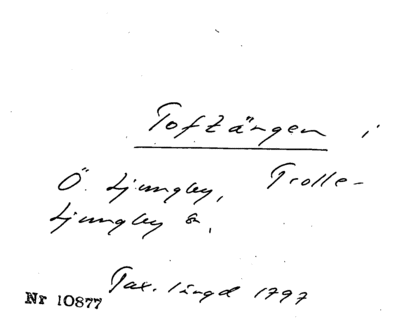 Toftängen i
Ö. Ljungby, Trolle-
Ljungby sn.
Tax. längd 1797
Nr 10877